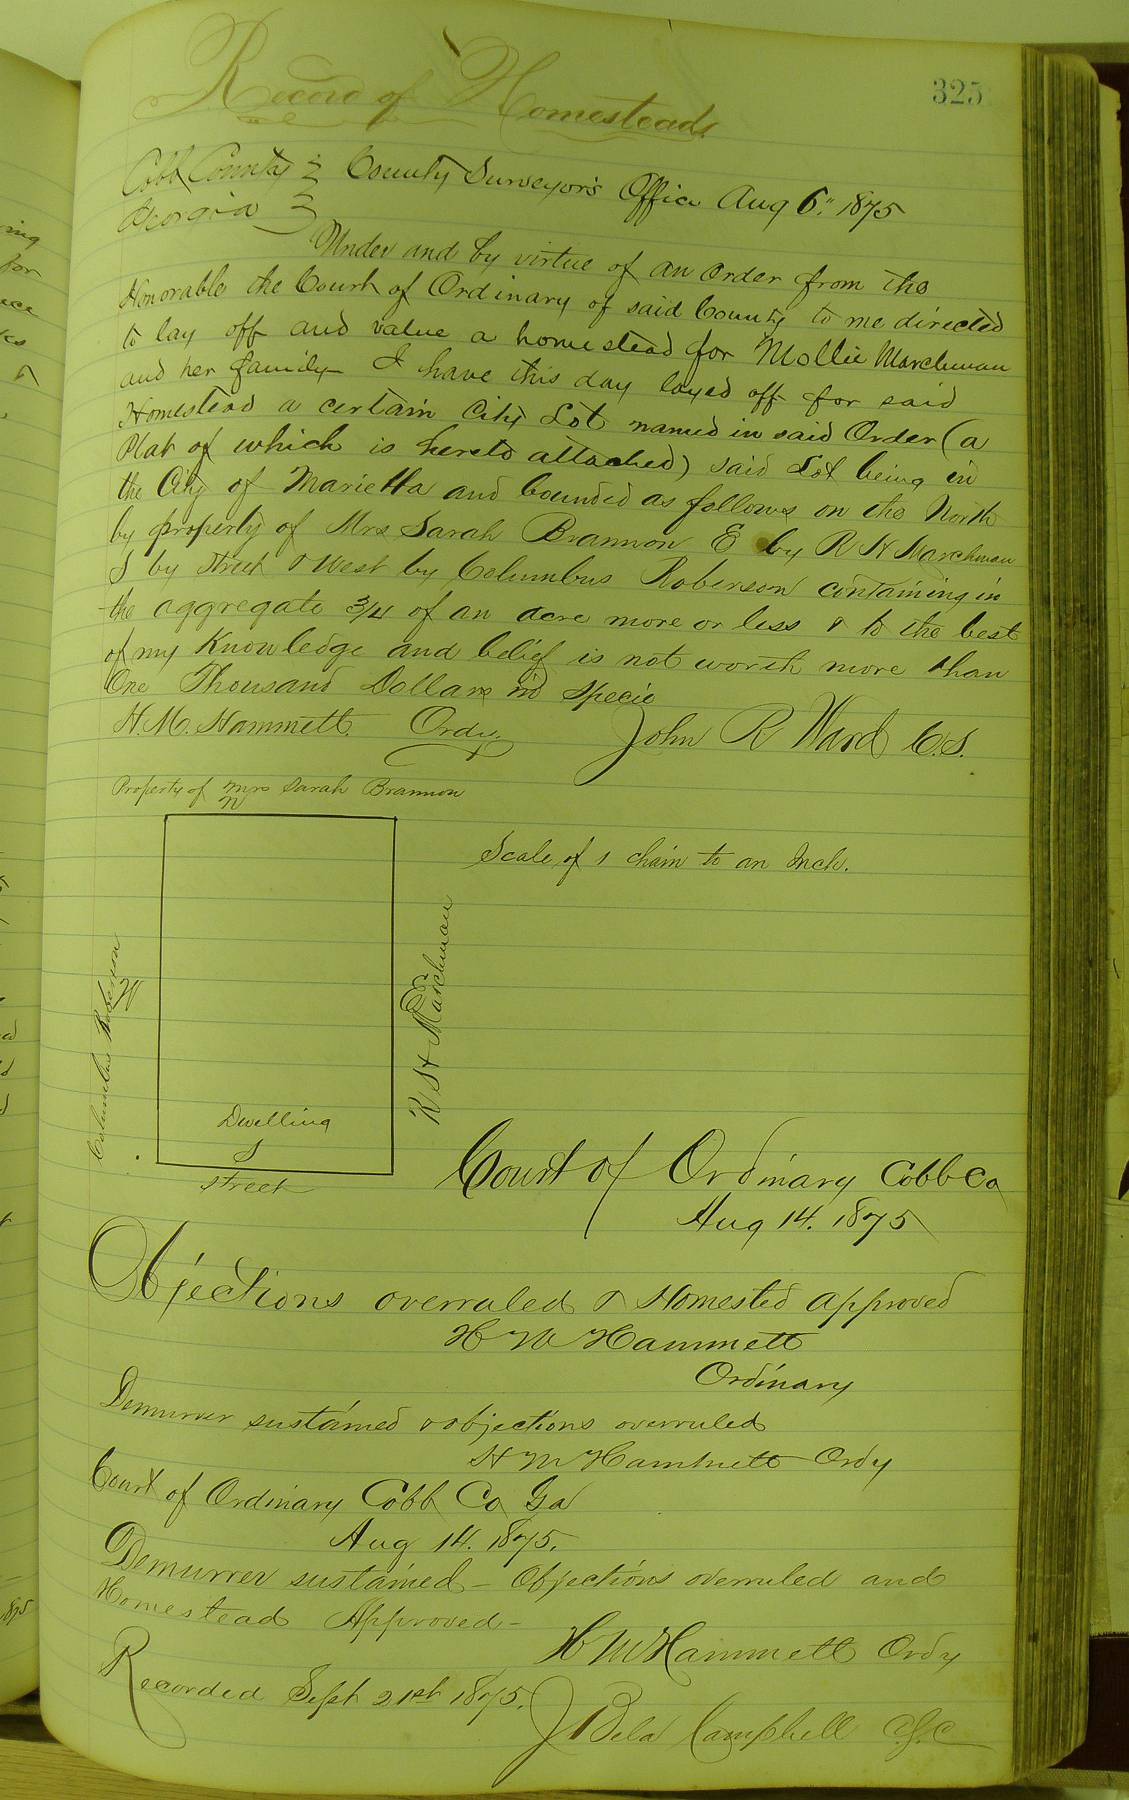 Record of Homesteads
325
Cobb County } County Surveyor's Office Aug 6" 1875
Georgia }
Under and by virtue of an order from the
Honorable the Court of Ordinary of said County to me directed
to lay off and value a homestead for Mollie Marchman
and her family I have this day layed off for said
Homestead a certain City Lot named in said Order (a
Plat of which is hereto attached) said Lot being in
the City of Marietta and bounded as follows on the North
by property of Mrs Sarah Brannon E by R H Marchman
S by Street & West by Columbus Roberson containing in
the aggregate 3/4 of an acre more or less & to the best
of my Knowledge and belief is not worth more than
One Thousand Dollars in Specie
H. M. Hammett Ordy John R Ward C.S.
Property of Mrs Sarah Brannon
N
Scale of 1 chain to an Inch.
Columbus Roberson
W
E
R H Marchman
Dwelling
S
Street
Court of Ordinary Cobb Co
Aug 14. 1875
Objections overruled & Homested approved
H M Hammett
Ordinary
Demurrer sustained & objections overruled
H M Hammett Ordy
Court of Ordinary Cobb Co Ga
Aug 14. 1875.
Demurrer sustained - Objections overruled and
Homestead Approved -
H M Hammett Ordy
Recorded Sept 21st 1875.
J Bela Campbell